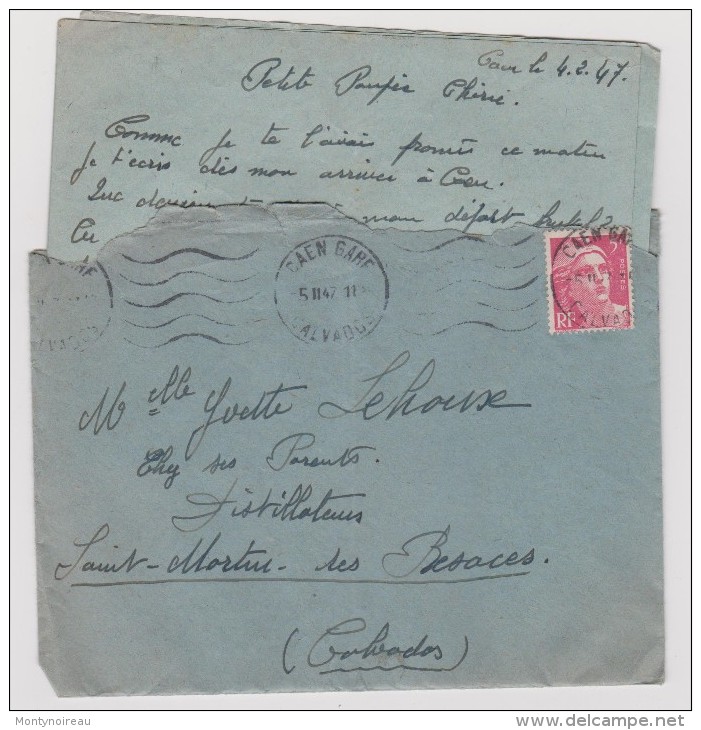 Caen le 4.2.47.
Petite Poupée Chérie.
Comme je te l'avais promis ce matin
je t'écris dès mon arrivée à Caen.
mon départ
CAEN GARE
5 II 47
CALVADOS
CAEN GARE
CALVADOS
5F
POSTES
RF
Melle Yvette Lehoux
Chez ses Parents.
Distillateurs
Saint-Martin-des Besaces.
(Calvados)
Montynoireau
www.delcampe.net